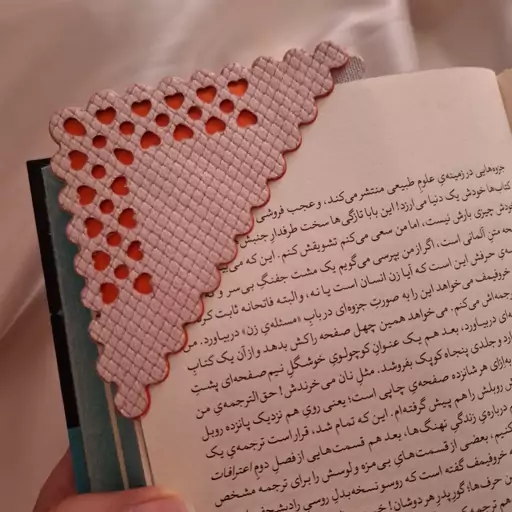 جزوه‌هایی در زمینه‌ی علوم طبیعی منتشر می‌کند، و عجب فروشی
کتاب‌ها خودش یک دنیا می‌ارزد! این بابا تازگی‌ها سخت طرفدارِ جنبش
خودش چیزی بارش نیست، اما من سعی می‌کنم تشویقش کنم. این که می‌بی
حه متنِ آلمانی است، اگر از من بپرسی می‌گویم یک مشت جفنگِ بی‌سر و
ی حرفش این است که آیا زن انسان است یا نه، و البته فاتحانه ثابت ک
خروفیمف می‌خواهد این را به صورتِ جزوه‌ای در بابِ «مسئله‌ی زن» دربیاورد. من
جمه‌اش می‌کنم. می‌خواهد همین چهل صفحه را کش بدهد و از آن یک کتاب
ه‌ای دربیاورد، بعد هم یک عنوانِ کوچولوی خوشگلِ نیم صفحه‌ای پشتِ
رد و جلدی پنجاه کوپک بفروشد. مثلِ نان می‌خرندش! حق‌الترجمه‌ی من
به‌ازای هر شانزده صفحه‌ی چاپی است؛ یعنی روی هم نزدیک پانزده روبل
ش روبلش را هم پیش گرفته‌ام. این که تمام شد، قرار است ترجمه‌ی یک
درباره‌ی زندگیِ نهنگ‌ها، بعد هم قسمت‌هایی از فصلِ دومِ اعترافات
کنیم، بعضی از قسمت‌های بی‌مزه و لوسش را برای ترجمه مشخص
خروفیمف گفته است که روسو نسخه‌بدلِ روسی رادیشچف
ن حرف‌ها؛ گورِ پدر هر دوشان!